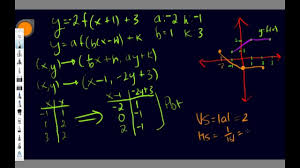 y=-2f(x+1)+3 a:-2 h:-1
y=af(b(x-h)+k b=1 k:3
(x,y)→(1/b x+h, ay+k)
(x,y)→(x-1, -2y+3)
x | y
-1 | 1
1 | 2
3 | 2
⇒
x-1 | -2y+3
-2 | 1
0 | -1
2 | -1
VS=|a|=2
HS=1/|b|=